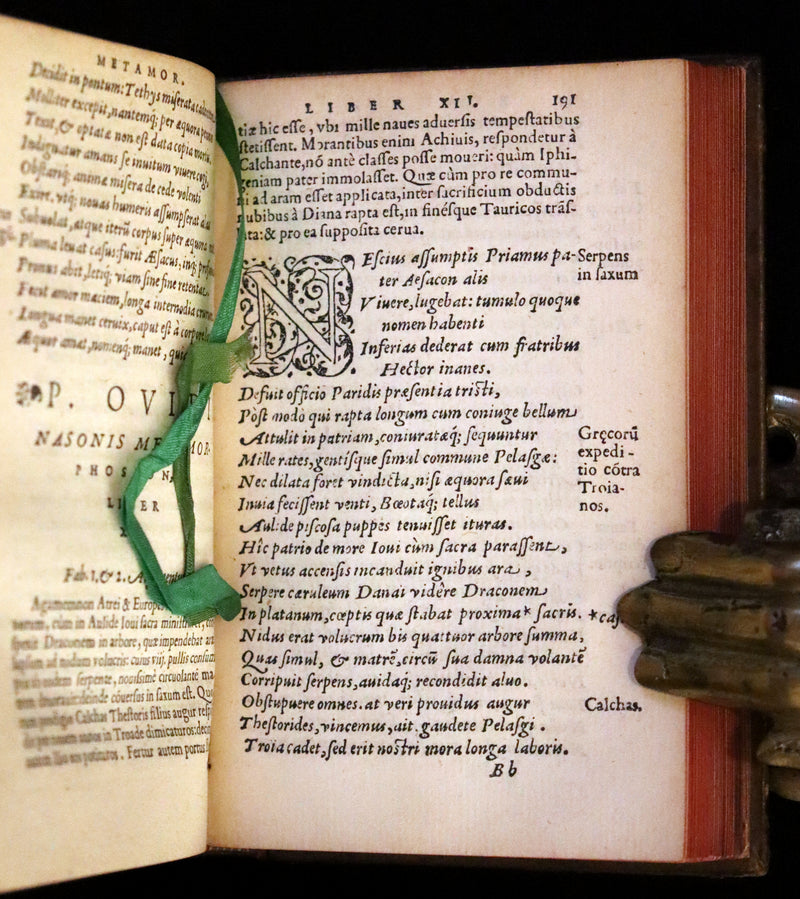 METAMOR.
Decidit in pontum: Tethys miserata
Molliter excepit, nantemq; per æquora
Texit, & optatæ non est data copia mortis.
Indignatur amans se inuitum viuere cogi,
Obstariq; animæ misera de sede volenti
Exire. vtq; nouas humeris assumpserat
Subuolat, atque iterū corpus super æquora
Pluma leuat casus: furit Æsacus, inq;
Pronus abit, letiq; viam sine fine retentat.
Fecit amor maciem, longa internodia
Longa manet ceruix, caput est à corpore
Æquor amat, nomenq; manet,
P. OVI
NASONIS
PHOS
LI ER
Fab. 1. & 2.
Agamemnon Atrei &
cùm in Aulide Ioui sacra
Draconem in arbore, quæ impendebat
ad nidum volucris: cuius viij. pullis
serpente, nouissimè circuolantē
deinde cōuersus in saxum est.
Calchas Thestoris filius augur
in Troade dimicaturos:
Fertur autem
LIBER XII. 191
tiæ hic esse, vbi mille naues aduersis tempestatibus
stetissent. Morantibus enim Achiuis, respondetur à
Calchante, nō antè classes posse moueri: quàm Iphi-
geniam pater immolasset. Quæ cùm pro re commu-
ni ad aram esset applicata, inter sacrificium obductis
nubibus à Diana rapta est, in finésque Tauricos trās-
lata: & pro ea supposita cerua.
NEscius assumptis Priamus pa-
Serpens
ter Aesacon alis
in saxum
Viuere, lugebat: tumulo quoque
nomen habenti
Inferias dederat cum fratribus
Hector inanes.
Defuit officio Paridis præsentia tristi,
Pòst modò qui rapta longum cum coniuge bellum
Attulit in patriam, coniuratæq; sequuntur
Gręcorū
Mille rates, gentisque simul commune Pelasgæ:
expedi-
tio cōtra
Nec dilata foret vindicta, nisi æquora sæui
Troia-
Inuia fecissent venti, Bœotaq; tellus
nos.
Aulide piscosa puppes tenuisset ituras.
Hîc patrio de more Ioui cùm sacra parassent,
Vt vetus accensis incanduit ignibus ara,
Serpere cæruleum Danai vidêre Draconem
In platanum, cœptis quæ stabat proxima* sacris.
Nidus erat volucrum bis quattuor arbore summa,
Quas simul, & matrē, circū sua damna volantē
Corripuit serpens, auidaq; recondidit aluo.
Obstupuere omnes. at veri prouidus augur
Calchas.
Thestorides, vincemus, ait. gaudete Pelasgi.
Troia cadet, sed erit nostri mora longa laboris.
Bb